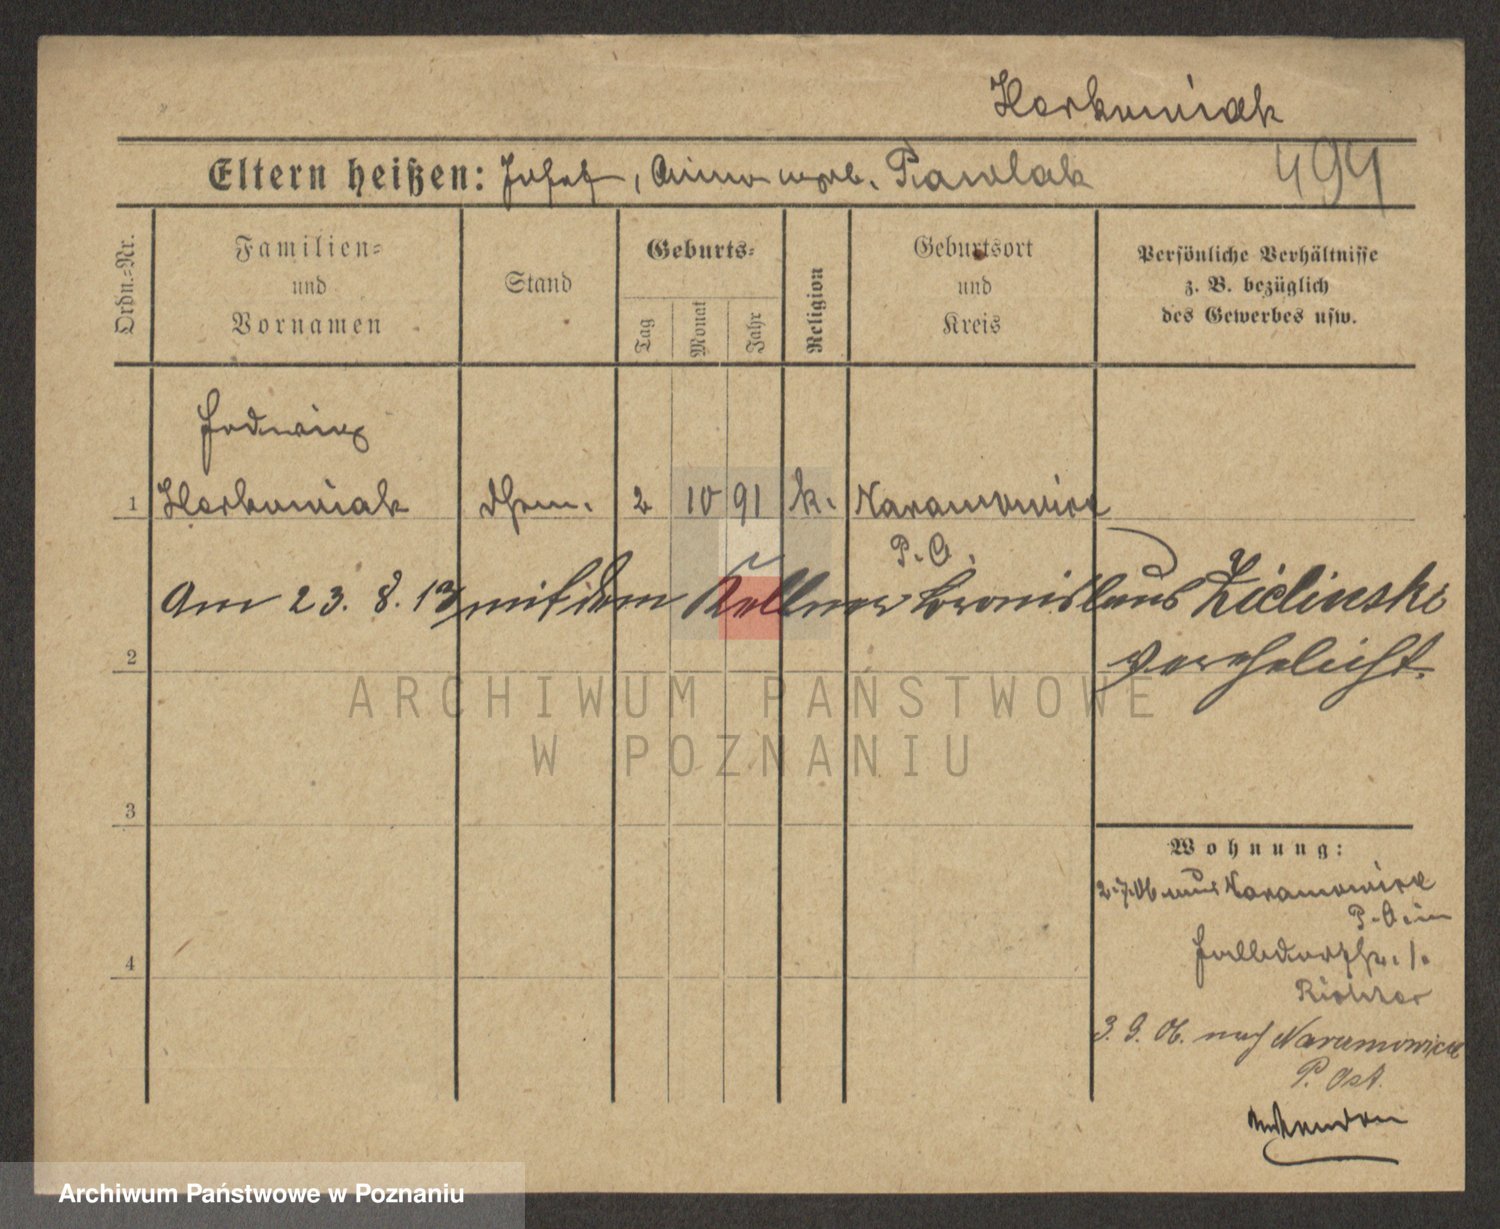 Harkowiak
Eltern heißen: Josef, Anna geb. Pawlak 494
Ordn.=Nr.
Familien=
und
Vornamen
Stand
Geburts=
Tag
Monat
Jahr
Religion
Geburtsort
und
Kreis
Persönliche Verhältnisse
z. B. bezüglich
des Gewerbes usw.
Hedwig
1 Harkowiak 2 10 91 k. Naramowice
P. O.
Am 23. 8. 13 mit dem Kellner Bronislaus Zielinski
2 verehelicht.
ARCHIWUM PAŃSTWOWE
W POZNANIU
3
Wohnung:
2.7.06 aus Naramowice
P. O. in
4
Richter
3. 9. 06. nach Naramowice
P. Ost.
Archiwum Państwowe w Poznaniu